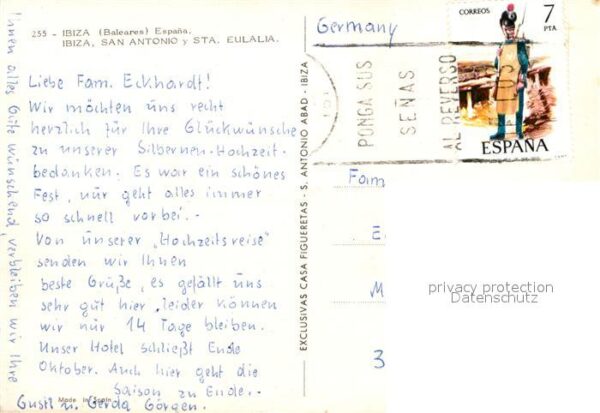 255 - IBIZA (Baleares) España.
IBIZA, SAN ANTONIO y STA. EULALIA.
Liebe Fam. Eckhardt!
Wir möchten uns recht
herzlich für Ihre Glückwünsche
zu unserer Silbernen-Hochzeit-
bedanken. Es war ein schönes
Fest, nur geht alles immer
so schnell vorbei.-
Von unserer "Hochzeitsreise"
senden wir Ihnen
beste Grüße, es gefällt uns
sehr gut hier, leider können
wir nur 14 Tage bleiben.
Unser Hotel schließt Ende
Oktober. Auch hier geht die
Saison zu Ende.-
Ihnen alles Gute wünschend, verbleiben wir Ihre
Gustl u. Gerda Görgen.
Made in Spain
EXCLUSIVAS CASA FIGUERETAS - S. ANTONIO ABAD - IBIZA
Germany
PONGA SUS
SEÑAS
AL REVERSO
CORREOS
7
PTA
ESPAÑA
Fam
E
M
3
privacy protection
Datenschutz